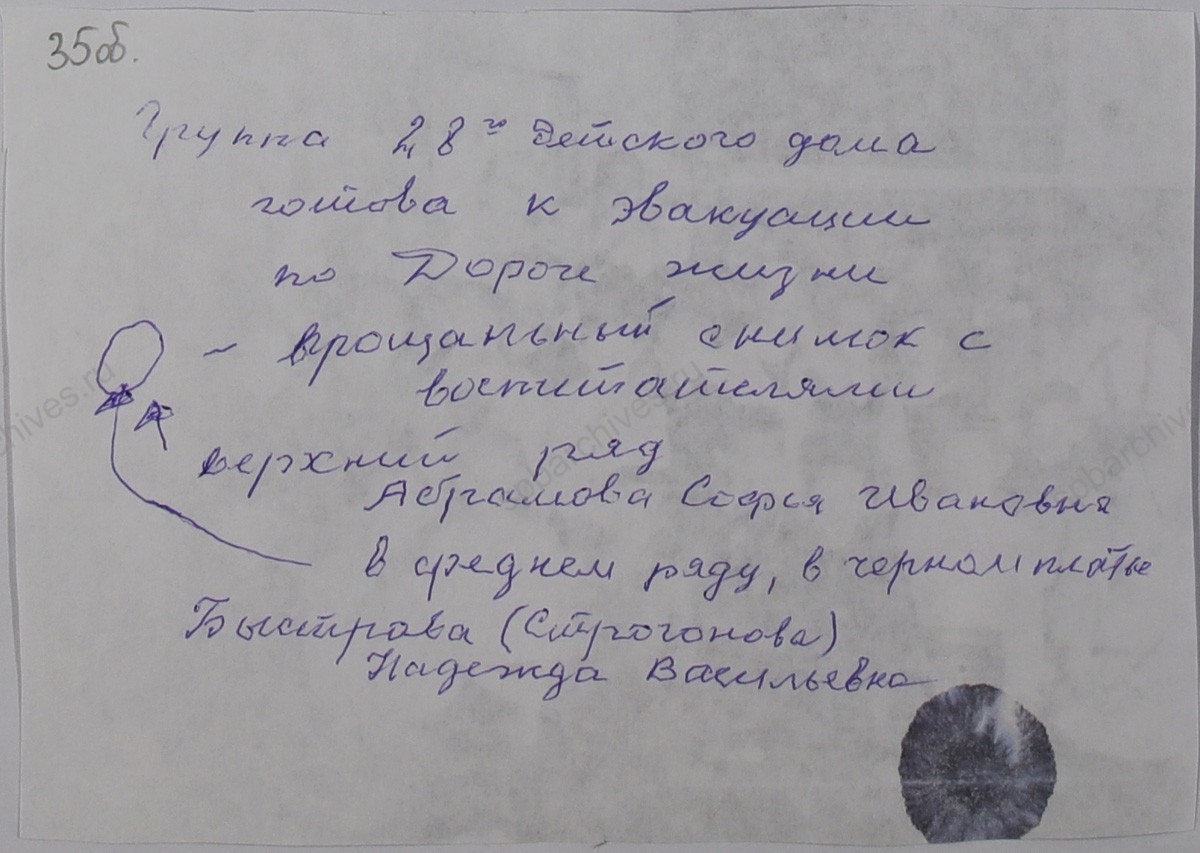 35об.
Группа 28го Детского дома
готова к эвакуации
по Дороге жизни
- прощальный снимок с
воспитателями
верхний ряд
Абрамова Софья Ивановна
в среднем ряду, в черном платье
Быстрова (Строгонова)
Надежда Васильевна
spbarchives.ru